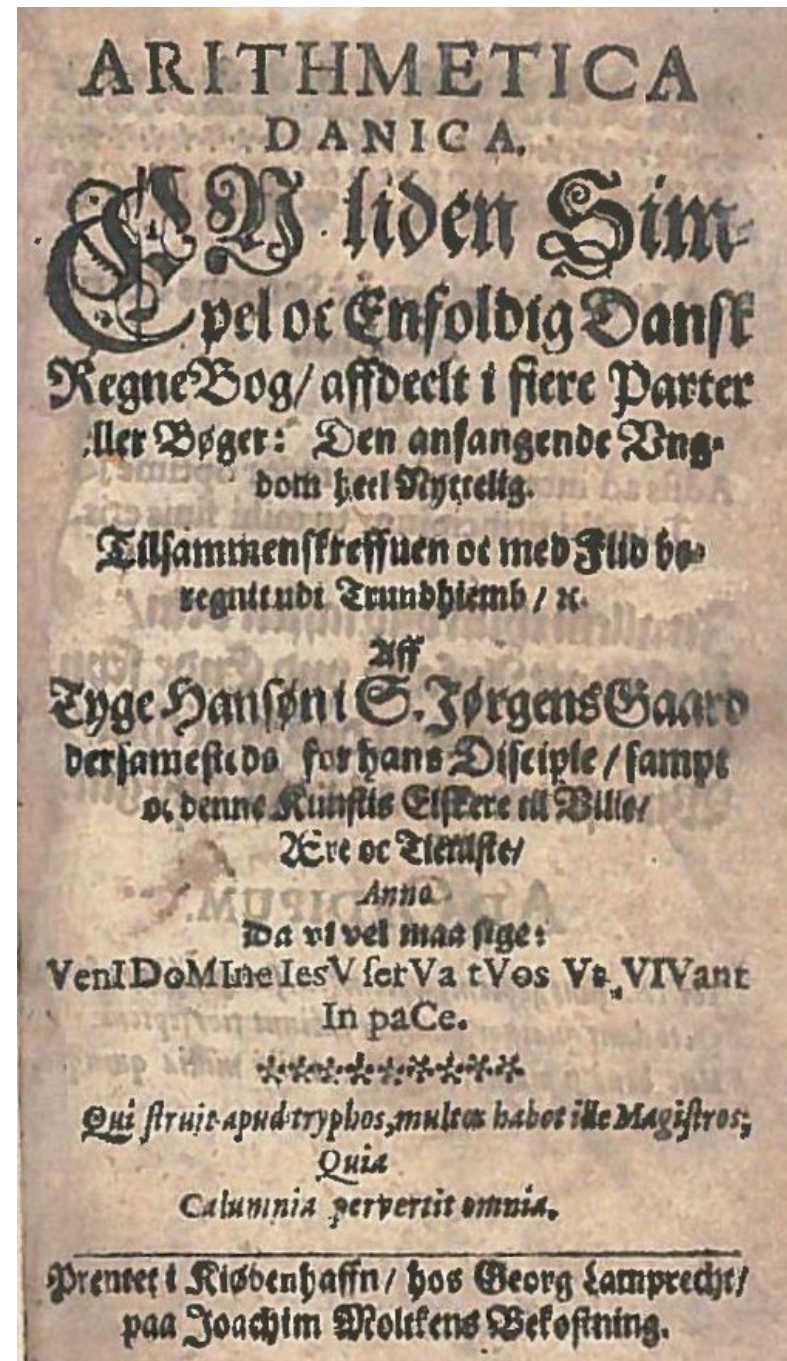 ARITHMETICA
DANICA.
EN liden Sim-
pel oc Enfoldig Dansk
RegneBog/ affdeelt i fiere Parter
ller Bøger: Den anfangende Vng-
dom heel Nyttelig.
Tilsammenskreffuen oc med Flid be-
regnit udi Trundhiemb / ꝛc.
Aff
Tyge Hansøn i S. JørgensGaard
dersamesteds for hans Disciple / sampt
oc denne Kunstis Elskere til Villie/
Ære oc Tieniste/
Anno
Da vi vel maa sige:
VenI DoMIne IesV serVa tVos Vt VIVant
In paCe.
Qui struit apud tryphos, multos habet ille Magistros;
Quia
Calumnia pervertit omnia.
Prentet i Kiøbenhaffn/ hos Georg Lamprecht/
paa Joachim Moltkens Bekostning.